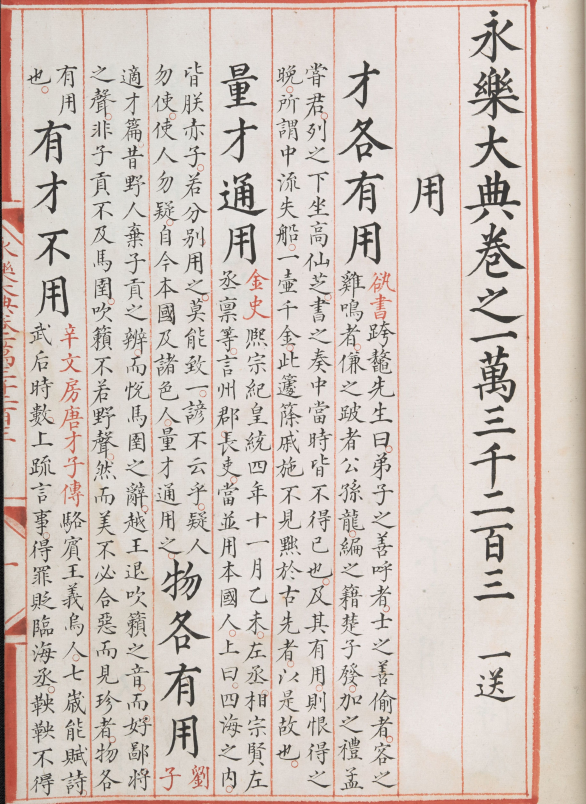 永樂大典卷之一萬三千二百三 一送
用
才各有用
欱書跨鼇先生曰弟子之善呼者士之善偷者客之
雞鳴者傔之跛者公孫龍編之籍楚子發加之禮孟
甞君列之下坐高仙芝書之奏中當時皆不得已也及其有用則恨得之
晚所謂中流失船一壷千金此籧篨戚施不見黜於古先者以是故也
量才通用
金史熙宗紀皇統四年十一月乙未左丞相宗賢左
丞禀等言州郡長吏當並用本國人上曰四海之内
皆朕赤子若分别用之莫能致一諺不云乎疑人
勿使使人勿疑自今本國及諸色人量才通用之
物各有用
劉
子
適才篇昔野人棄子貢之辨而悅馬圉之辭越王退吹籟之音而好鄙將
之聲非子貢不及馬圉吹籟不若野聲然而美不必合惡而見珍者物各
有用
也
有才不用
辛文房唐才子傳駱賓王義烏人七歲能賦詩
武后時數上疏言事得罪貶臨海丞鞅鞅不得